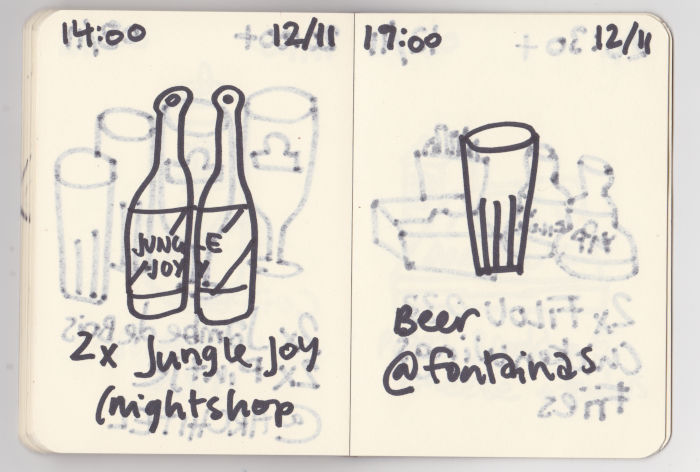 14:00 12/11
JUNGLE
JOY
2x Jungle Joy
(nightshop
19:00 12/11
Beer
@fontainas